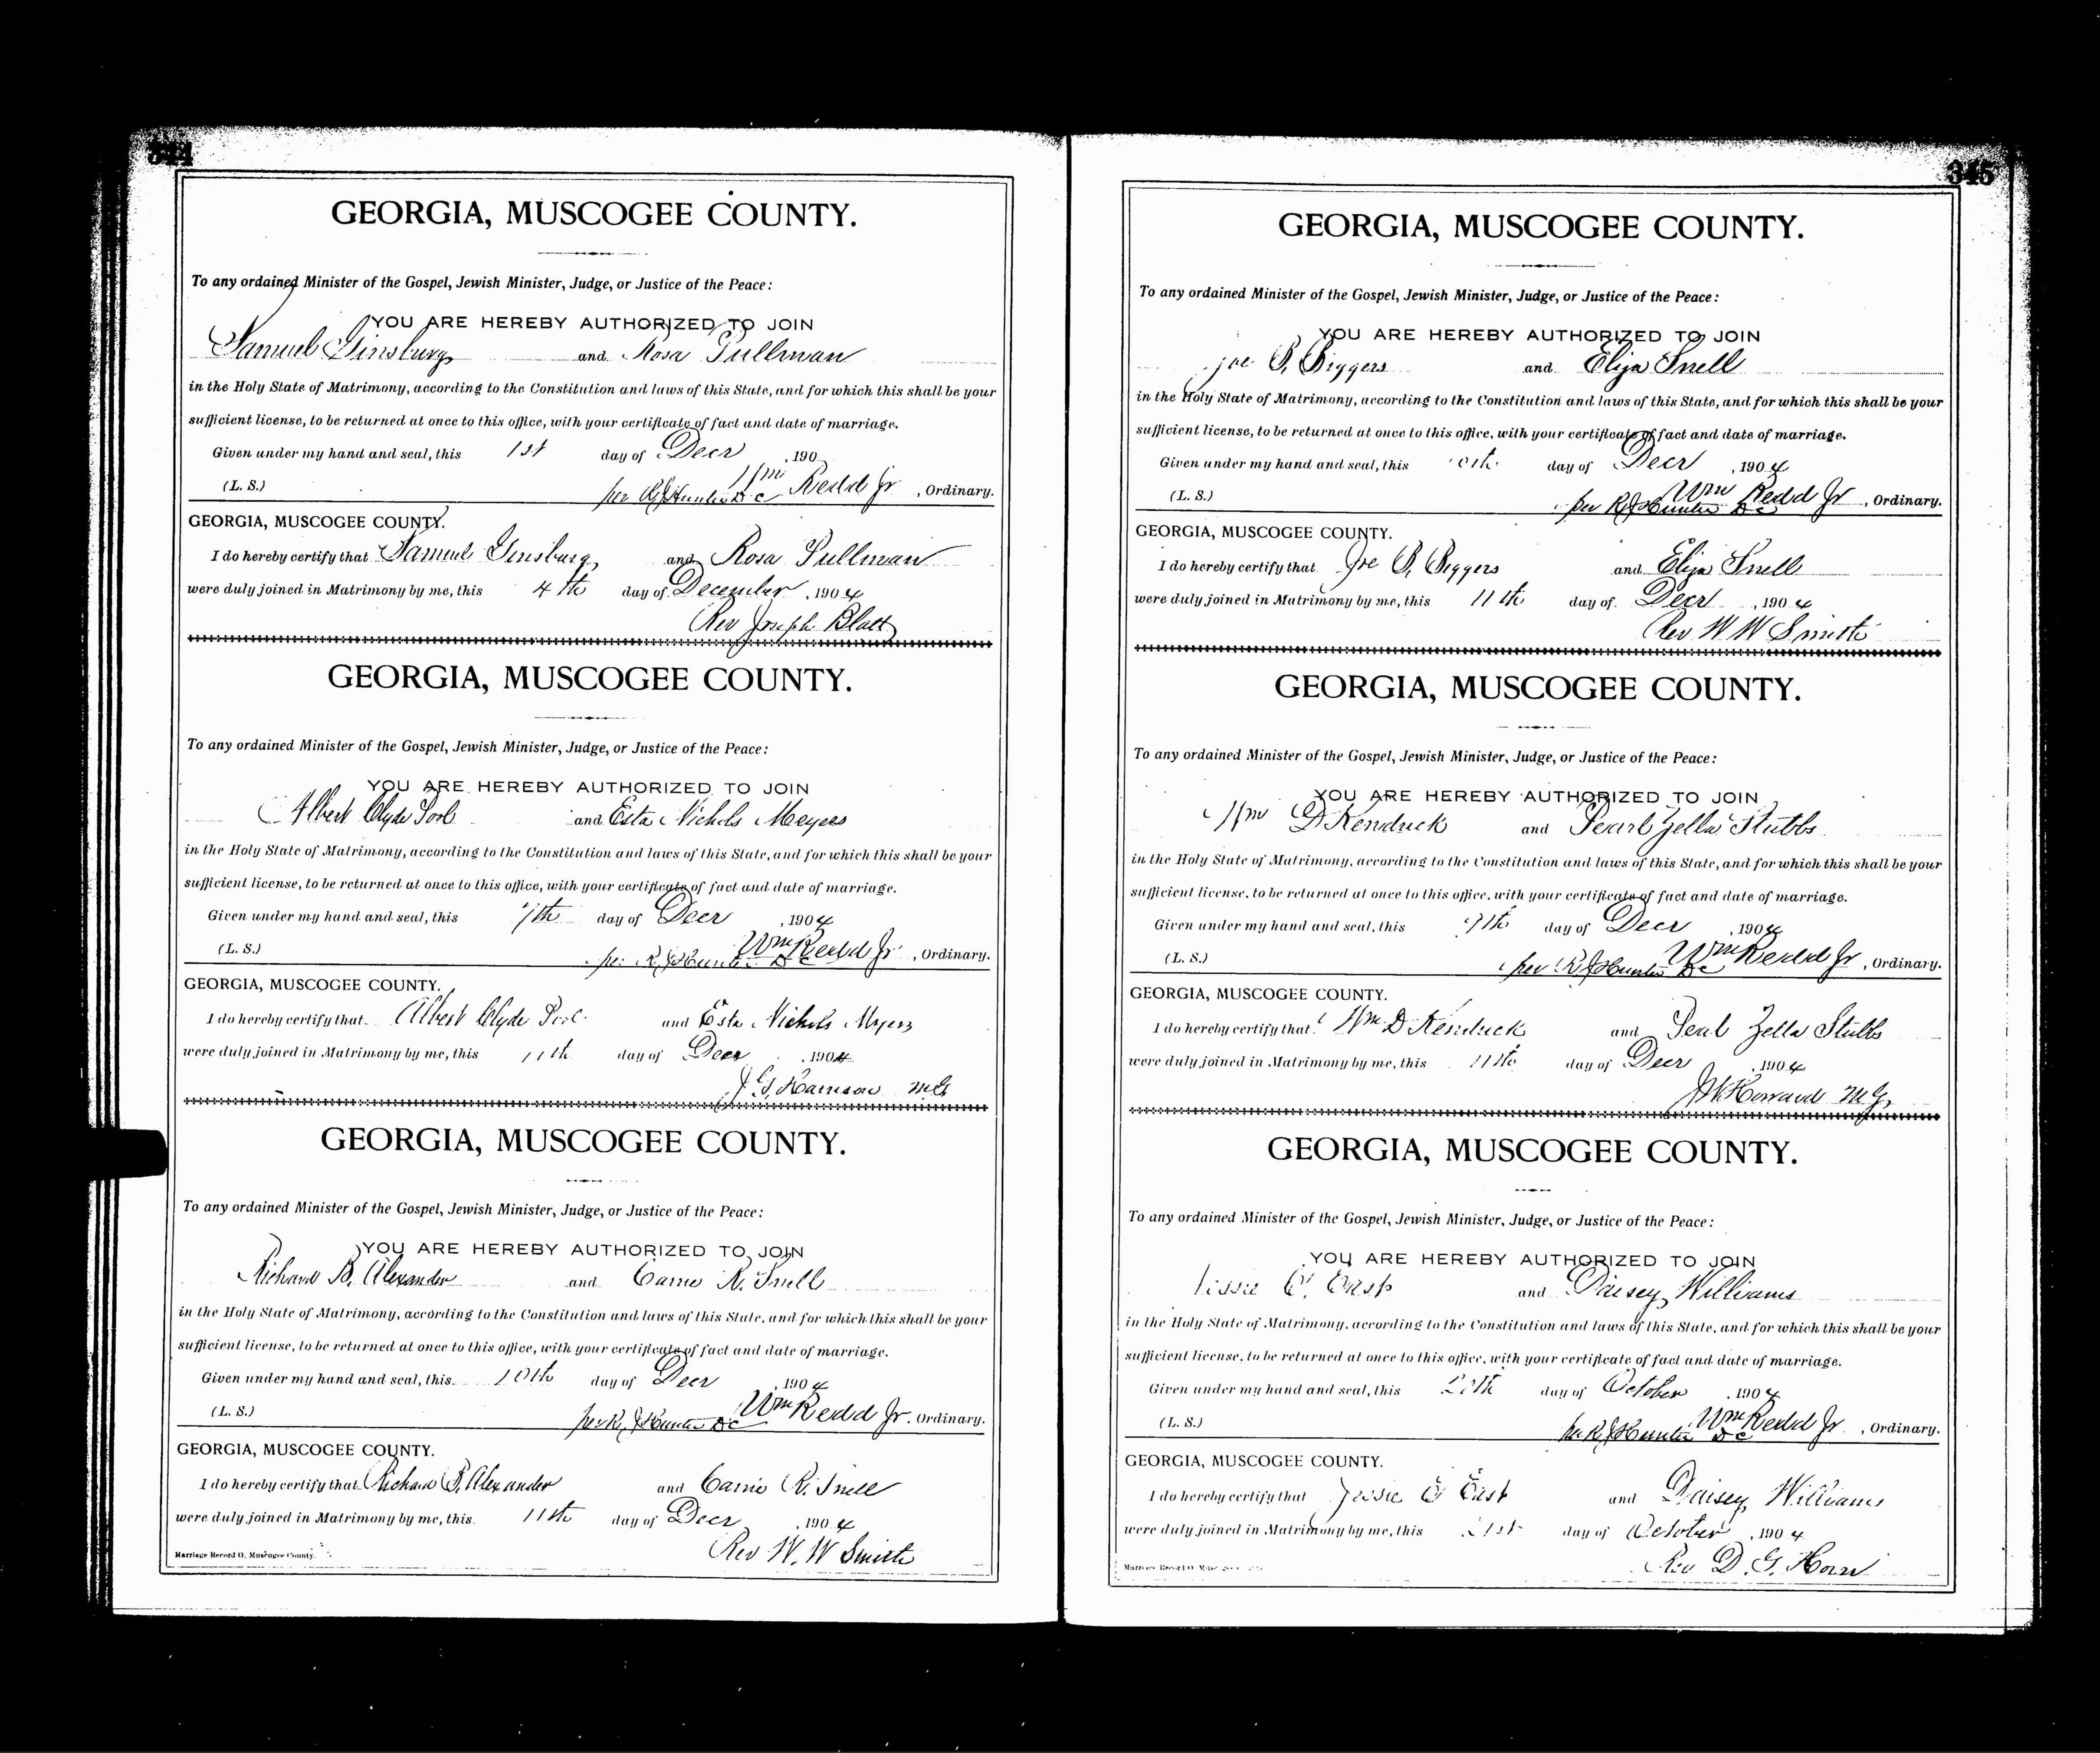 344
GEORGIA, MUSCOGEE COUNTY.
To any ordained Minister of the Gospel, Jewish Minister, Judge, or Justice of the Peace:
YOU ARE HEREBY AUTHORIZED TO JOIN
Samuel Ginsburg and Rosa Pullman
in the Holy State of Matrimony, according to the Constitution and laws of this State, and for which this shall be your
sufficient license, to be returned at once to this office, with your certificate of fact and date of marriage.
Given under my hand and seal, this 1st day of Decr , 190
(L. S.) per R J Hunter D C Wm Redd Jr , Ordinary.
GEORGIA, MUSCOGEE COUNTY.
I do hereby certify that Samuel Ginsburg and Rosa Pullman
were duly joined in Matrimony by me, this 4th day of December , 1904
Rev Joseph Blatt
GEORGIA, MUSCOGEE COUNTY.
To any ordained Minister of the Gospel, Jewish Minister, Judge, or Justice of the Peace:
YOU ARE HEREBY AUTHORIZED TO JOIN
Albert Clyde Pool and Esta Nichols Meyers
in the Holy State of Matrimony, according to the Constitution and laws of this State, and for which this shall be your
sufficient license, to be returned at once to this office, with your certificate of fact and date of marriage.
Given under my hand and seal, this 7th day of Decr , 1904
(L. S.) per R J Hunter D C Wm Redd Jr , Ordinary.
GEORGIA, MUSCOGEE COUNTY.
I do hereby certify that Albert Clyde Pool and Esta Nichols Myers
were duly joined in Matrimony by me, this 11th day of Decr , 1904
J G Harrison M G
GEORGIA, MUSCOGEE COUNTY.
To any ordained Minister of the Gospel, Jewish Minister, Judge, or Justice of the Peace:
YOU ARE HEREBY AUTHORIZED TO JOIN
Richard B. Alexander and Carrie R. Snell
in the Holy State of Matrimony, according to the Constitution and laws of this State, and for which this shall be your
sufficient license, to be returned at once to this office, with your certificate of fact and date of marriage.
Given under my hand and seal, this 10th day of Decr , 1904
(L. S.) per R J Hunter D C Wm Redd Jr. Ordinary.
GEORGIA, MUSCOGEE COUNTY.
I do hereby certify that Richard B. Alexander and Carrie R. Snell
were duly joined in Matrimony by me, this 11th day of Decr , 1904
Rev W. W Smith
Marriage Record O, Muscogee County.
345
GEORGIA, MUSCOGEE COUNTY.
To any ordained Minister of the Gospel, Jewish Minister, Judge, or Justice of the Peace:
YOU ARE HEREBY AUTHORIZED TO JOIN
Joe B. Biggers and Eliza Snell
in the Holy State of Matrimony, according to the Constitution and laws of this State, and for which this shall be your
sufficient license, to be returned at once to this office, with your certificate of fact and date of marriage.
Given under my hand and seal, this 10th day of Decr , 1904
(L. S.) per R J Hunter D C Wm Redd Jr , Ordinary.
GEORGIA, MUSCOGEE COUNTY.
I do hereby certify that Joe B. Biggers and Eliza Snell
were duly joined in Matrimony by me, this 11th day of Decr , 1904
Rev W W Smith
GEORGIA, MUSCOGEE COUNTY.
To any ordained Minister of the Gospel, Jewish Minister, Judge, or Justice of the Peace:
YOU ARE HEREBY AUTHORIZED TO JOIN
Wm D Kendrick and Pearl Zella Stubbs
in the Holy State of Matrimony, according to the Constitution and laws of this State, and for which this shall be your
sufficient license, to be returned at once to this office, with your certificate of fact and date of marriage.
Given under my hand and seal, this day of Decr , 1904
(L. S.) per R J Hunter D C Wm Redd Jr , Ordinary.
GEORGIA, MUSCOGEE COUNTY.
I do hereby certify that Wm D Kendrick and Pearl Zella Stubbs
were duly joined in Matrimony by me, this 11th day of Decr , 1904
J W Howard M G,
GEORGIA, MUSCOGEE COUNTY.
To any ordained Minister of the Gospel, Jewish Minister, Judge, or Justice of the Peace:
YOU ARE HEREBY AUTHORIZED TO JOIN
Jessie O. East and Daisey Williams
in the Holy State of Matrimony, according to the Constitution and laws of this State, and for which this shall be your
sufficient license, to be returned at once to this office, with your certificate of fact and date of marriage.
Given under my hand and seal, this 20th day of October , 1904
(L. S.) per R J Hunter D C Wm Redd Jr , Ordinary.
GEORGIA, MUSCOGEE COUNTY.
I do hereby certify that Jessie O East and Daisey Williams
were duly joined in Matrimony by me, this 21st day of October , 1904
Rev D. G. Horn
Marriage Record O